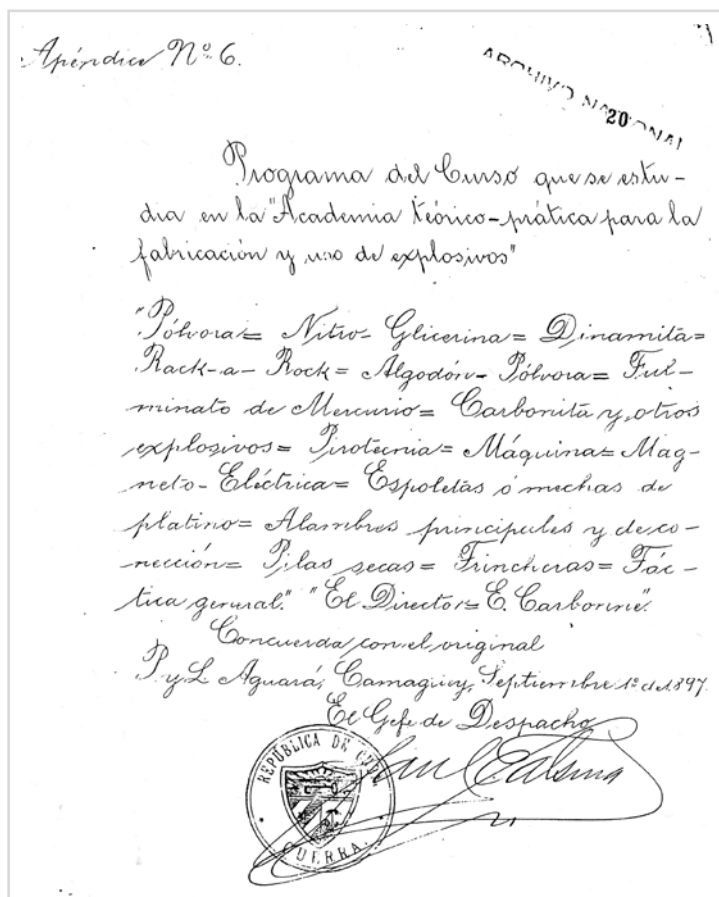 Apéndice Nº 6.
ARCHIVO NACIONAL
20
Programa del Curso que se estu-
dia en la "Academia teórico-prática para la
fabricación y uso de explosivos"
"Pólvora= Nitro-Glicerina= Dinamita=
Rack-a-Rock= Algodón-Pólvora= Ful-
minato de Mercurio= Carbonita y otros
explosivos= Pirotecnia= Máquina= Mag-
neto-Eléctrica= Espoletas ó mechas de
platino= Alambres principales y de co-
nección= Pilas secas= Trincheras= Tác-
tica general." "El Director= E. Carbonne".
Concuerda con el original
P y L Aguará, Camagüey, Septiembre 1º de 1897.
El Gefe de Despacho
REPÚBLICA DE CUBA
GUERRA.